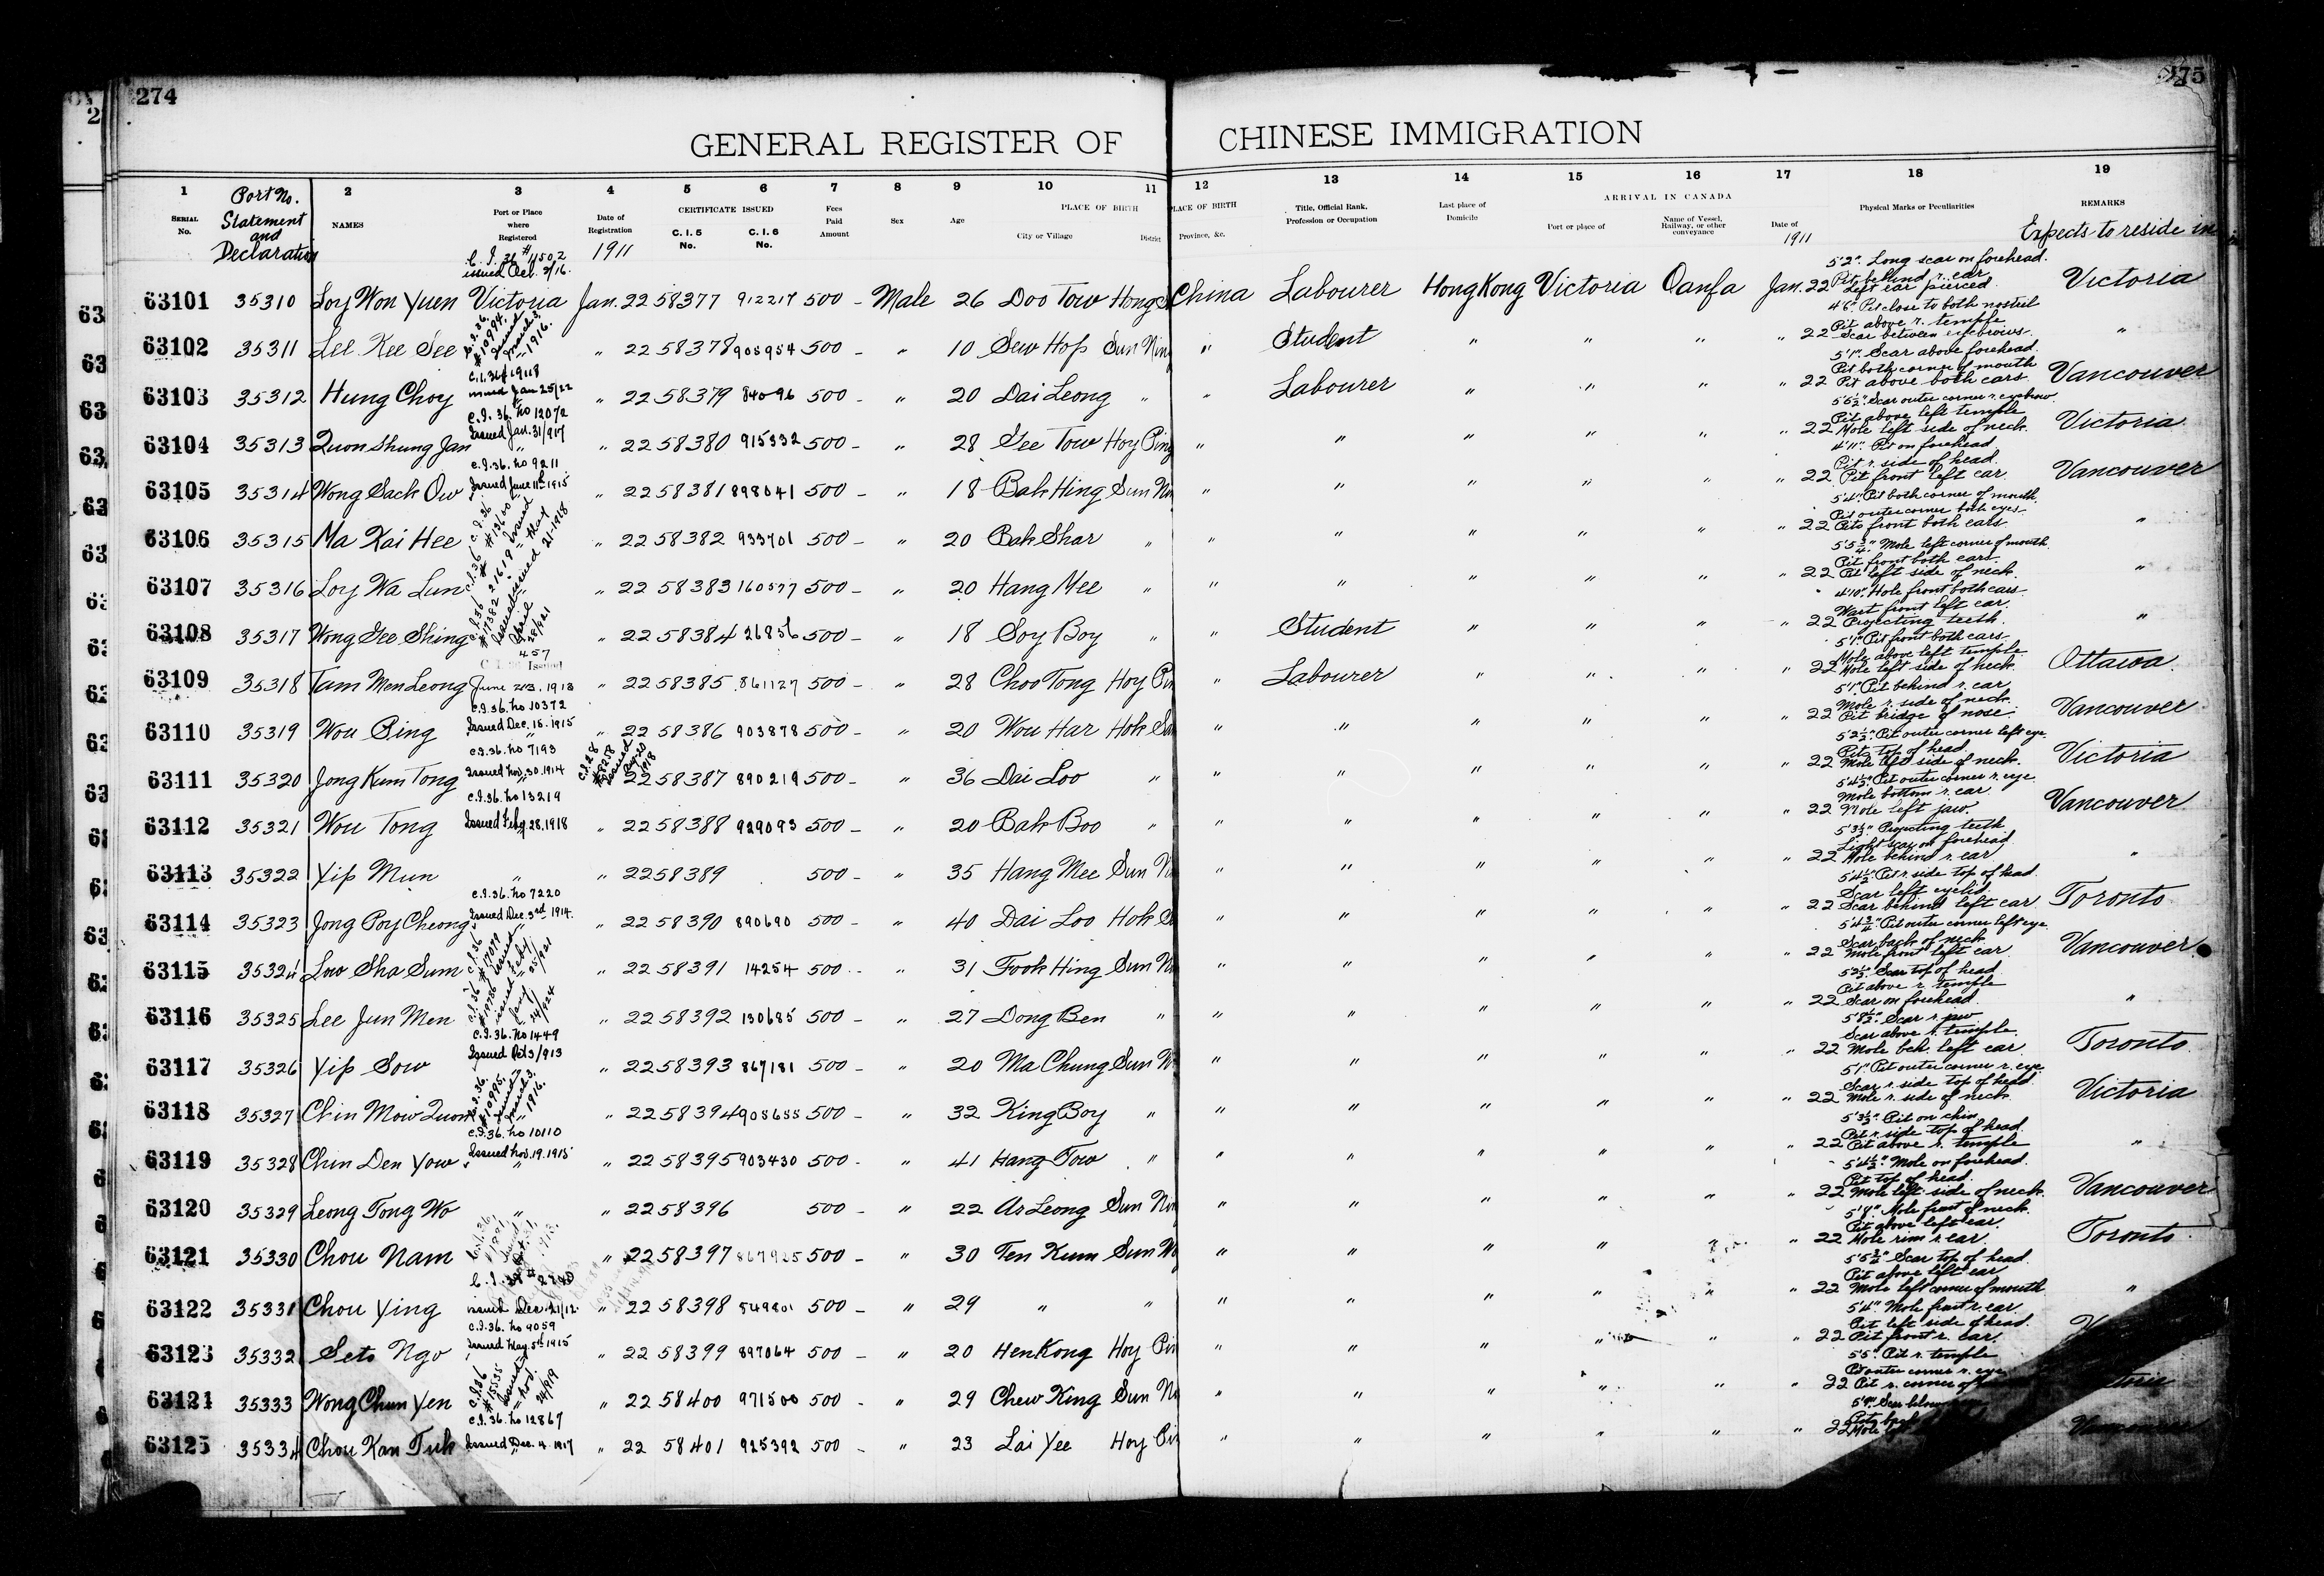 274
275
GENERAL REGISTER OF CHINESE IMMIGRATION
1 Port No. 2 3 4 5 6 7 8 9 10 11 12 13 14 15 16 17 18 19
SERIAL No. Statement and Declaration NAMES Port or Place where Registered Date of Registration CERTIFICATE ISSUED C. I. 5 No. C. I. 6 No. Fees Paid Amount Sex Age PLACE OF BIRTH City or Village District PLACE OF BIRTH Province, &c. Title, Official Rank, Profession or Occupation Last place of Domicile ARRIVAL IN CANADA Port or place of Name of Vessel, Railway, or other conveyance Date of Physical Marks or Peculiarities REMARKS
1911 1911 Expects to reside in
C. I. 36 #11502 issued Oct. 2/16.
5'2". Long scar on forehead.
Pit behind r. ear
63101 35310 Loy Won Yuen Victoria Jan. 22 58377 912217 500 - Male 26 Doo Tow China Labourer Hong Kong Victoria Oanfa Jan. 22 Left ear pierced Victoria
C.I.36. #10994. Issued March 3, 1916.
4'6". Pit close to both nostril
Pit above r. temple
63102 35311 Lee Kee See " 22 58378 905954 500 - " 10 Sew Hop Sun Nin " Student " " " " 22 Scar between eyebrows "
C.I.36 # 19118 issued Jan 25/22
5'1". Scar above forehead.
Pit both corner of mouth
63103 35312 Hung Choy " 22 58379 84096 500 - " 20 Dai Leong " " Labourer " " " " 22 Pit above both ears Vancouver
C.I. 36. No 12072 Issued Jan. 31/917
5'5½". Scar outer corner r. eyebrow
Pit above left temple
63104 35313 Quon Shung Jan " " 22 58380 915332 500 - " 28 Gee Tow Hoy Ping " " " " " " 22 Mole left side of neck. Victoria
C.I.36. No 9211 Issued June 11th 1915
4'11". Pit on forehead
Pit r. side of head.
63105 35314 Wong Sack Ow " " 22 58381 898041 500 - " 18 Bak Hing Sun Nin " " " " " " 22 Pit front left ear Vancouver
C.I.36 #13600 Issued May 21-1918
5'4". Pit both corner of mouth
Pit outer corner both eyes
63106 35315 Ma Kai Hee " 22 58382 933701 500 - " 20 Bak Shar " " " " " " " 22 Pits front both ears "
5'5¾" Mole left corner of mouth
Pit front both ears
63107 35316 Loy Wa Lun " 22 58383 160577 500 - " 20 Hang Mee " " " " " " " 22 Pit left side of neck. "
C.I.36 #17382 Issued April 28/921
4'10". Hole front both ears
Wart front left ear.
63108 35317 Wong Gee Shing " 22 58384 26856 500 - " 18 Soy Boy " " Student " " " " 22 Projecting teeth. "
457 C. I. Issued June 23, 1913
5'1". Pit front both ears
Mole above left temple
63109 35318 Tam Men Leong " 22 58385 861127 500 - " 28 Choo Tong Hoy Pin " Labourer " " " " 22 Mole left side of neck Ottawa
C.I.36. No 10372 Issued Dec. 15. 1915
5'1". Pit behind r. ear
Mole r. side of neck.
63110 35319 Wou Bing " " 22 58386 903878 500 - " 20 Wou Har Hok San " " " " " " 22 Pit bridge of nose Vancouver
C.I.36. No 7193 Issued Nov. 30. 1914
C.I.28 #8258 Issued 1918
5'2½". Pit outer corner left eye
Pits top of head
63111 35320 Jong Kum Tong " 22 58387 890219 500 - " 36 Dai Loo " " " " " " " 22 Mole left side of neck. Victoria
C.I.36. No 13219 Issued Feby. 28. 1918
5'4½" Pit outer corner r. eye
Mole bottom r. ear
63112 35321 Wou Tong " 22 58388 929093 500 - " 20 Bak Boo " " " " " " " 22 Mole left jaw. Vancouver
5'3½" Projecting teeth
Light scar on forehead
63113 35322 Yip Mun " " 22 58389 500 - " 35 Hang Mee Sun N " " " " " " 22 Mole behind r. ear "
C.I.36. No 7220 Issued Dec. 3rd 1914.
5'4½". Pit r. side top of head.
Scar left eyelid.
63114 35323 Jong Poy Cheong " " 22 58390 890690 500 - " 40 Dai Loo Hok S " " " " " " 22 Scar behind left ear Toronto
C.I.36 #17079 Issued Feby. 25/921
5'4¾" Pit outer corner left eye
Scar back of neck
63115 35324 Low Sha Sum " 22 58391 14254 500 - " 31 Fook Hing Sun N " " " " " " 22 Mole front left ear Vancouver
C.I.36 #19786 issued Jany 24/1924
5'2½" Scar top of head
Pit above r. temple
63116 35325 Lee Jun Men " 22 58392 130685 500 - " 27 Dong Ben " " " " " " " 22 Scar on forehead "
C.I.36. No 1449 Issued Oct 3/913
5'8½". Scar r. jaw
Scar above r. temple
63117 35326 Yip Sow " 22 58393 867181 500 - " 20 Ma Chung Sun N " " " " " " 22 Mole beh. left ear Toronto
C.I.36. #10995. Issued March 3, 1916.
5'1". Pit outer corner r. eye
Scar r. side top of head
63118 35327 Chin Mow Quon " 22 58394 905655 500 - " 32 King Boy " " " " " " " 22 Mole r. side of neck Victoria
C.I.36. No 10110 Issued Nov. 19. 1915
5'3½". Pit on chin
Pit r. side top of head
63119 35328 Chin Den Yow " " 22 58395 903430 500 - " 41 Hang Tow " " " " " " " 22 Pit above r. temple "
5'4½". Mole on forehead.
Pit top of head.
63120 35329 Leong Tong Wo " " 22 58396 500 - " 22 Ar Leong Sun Nin " " " " " " 22 Mole left side of neck. Vancouver
Mole front of neck.
Pit above left ear.
63121 35330 Chou Nam " 22 58397 867925 500 - " 30 Ten Kum Sun N " " " " " " 22 Mole rim r. ear. Toronto
issued Dec. 21/12.
5'5¾" Scar top of head
Pit above left ear
63122 35331 Chou Ying " 22 58398 549801 500 - " 29 " " " " " " " " 22 Mole left corner of mouth "
C.I.36. No 9059 Issued May. 5th 1915
5'4". Mole front r. ear
Pit left side of head.
63123 35332 Seto Ngo " 22 58399 897064 500 - " 20 Hen Kong Hoy Pin " " " " " " 22 Pit front r. ear.
C.I.36 #15535 Issued Nov. 24/919
5'5". Pit r. temple
Pit outer corner r. eye
63124 35333 Wong Chun Yen " 22 58400 971500 500 - " 29 Chew King Sun N " " " " " " 22 Pit r. corner of
C.I.36. No 12867 Issued Dec. 4. 1917
63125 35334 Chou Kan Tuk " " 22 58401 925392 500 - " 23 Lai Yee Hoy Pin " " " " " " 22 Mole left Vancouver